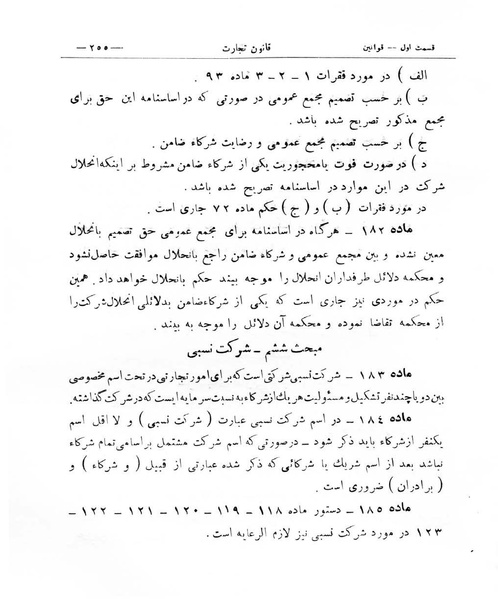 قسمت اول -- قوانین قانون تجارت —۲۵۵—
الف ) در مورد فقرات ۱ – ۲ – ۳ ماده ۹۳ .
ب ) بر حسب تصمیم مجمع عمومی در صورتی که در اساسنامه این حق برای
مجمع مذکور تصریح شده باشد .
ج ) بر حسب تصمیم مجمع عمومی و رضایت شرکاء ضامن .
د ) در صورت فوت یا محجوریت یکی از شرکاء ضامن مشروط بر اینکه انحلال
شرکت در این موارد در اساسنامه تصریح شده باشد .
در مورد فقرات ( ب ) و ( ج ) حکم ماده ۷۲ جاری است .
ماده ۱۸۲ – هرگاه در اساسنامه برای مجمع عمومی حق تصمیم بانحلال
معین نشده و بین مجمع عمومی و شرکاء ضامن راجع بانحلال موافقت حاصل نشود
و محکمه دلائل طرفداران انحلال را موجه ببیند حکم بانحلال خواهد داد. همین
حکم در موردی نیز جاری است که یکی از شرکاء ضامن بدلائلی انحلال شرکت را
از محکمه تقاضا نموده و محکمه آن دلائل را موجه به بیند .
مبحث ششم – شرکت نسبی
ماده ۱۸۳ – شرکت نسبی شرکتی است که برای امور تجارتی در تحت اسم مخصوصی
بین دو یا چند نفر تشکیل و مسئولیت هر یك از شرکاء به نسبت سرمایه ایست که در شرکت گذاشته.
ماده ۱۸۴ – در اسم شرکت نسبی عبارت ( شرکت نسبی ) و لا اقل اسم
یکنفر از شرکاء باید ذکر شود – در صورتی که اسم شرکت مشتمل بر اسامی تمام شرکاء
نباشد بعد از اسم شریك یا شرکائی که ذکر شده عبارتی از قبیل ( و شرکاء ) و
( و برادران ) ضروری است .
ماده ۱۸۵ – دستور ماده ۱۱۸ – ۱۱۹ – ۱۲۰ – ۱۲۱ – ۱۲۲ –
۱۲۳ در مورد شرکت نسبی نیز لازم الرعایه است .